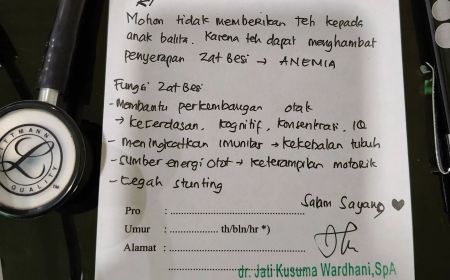 Mohon tidak memberikan teh kepada
anak balita. Karena teh dapat menghambat
penyerapan Zat Besi → ANEMIA
Fungsi Zat Besi
- Membantu perkembangan otak
→ Kecerdasan, Kognitif, Konsentrasi, IQ
- meningkatkan imunitas → Kekebalan tubuh
- Sumber energi otot → Keterampilan motorik
- Cegah stunting
Salam Sayang
Pro : ................................
Umur : ................ th/bln/hr *)
Alamat : ................................
dr. Jati Kusuma Wardhani,SpA
LITTMANN
QUALITY